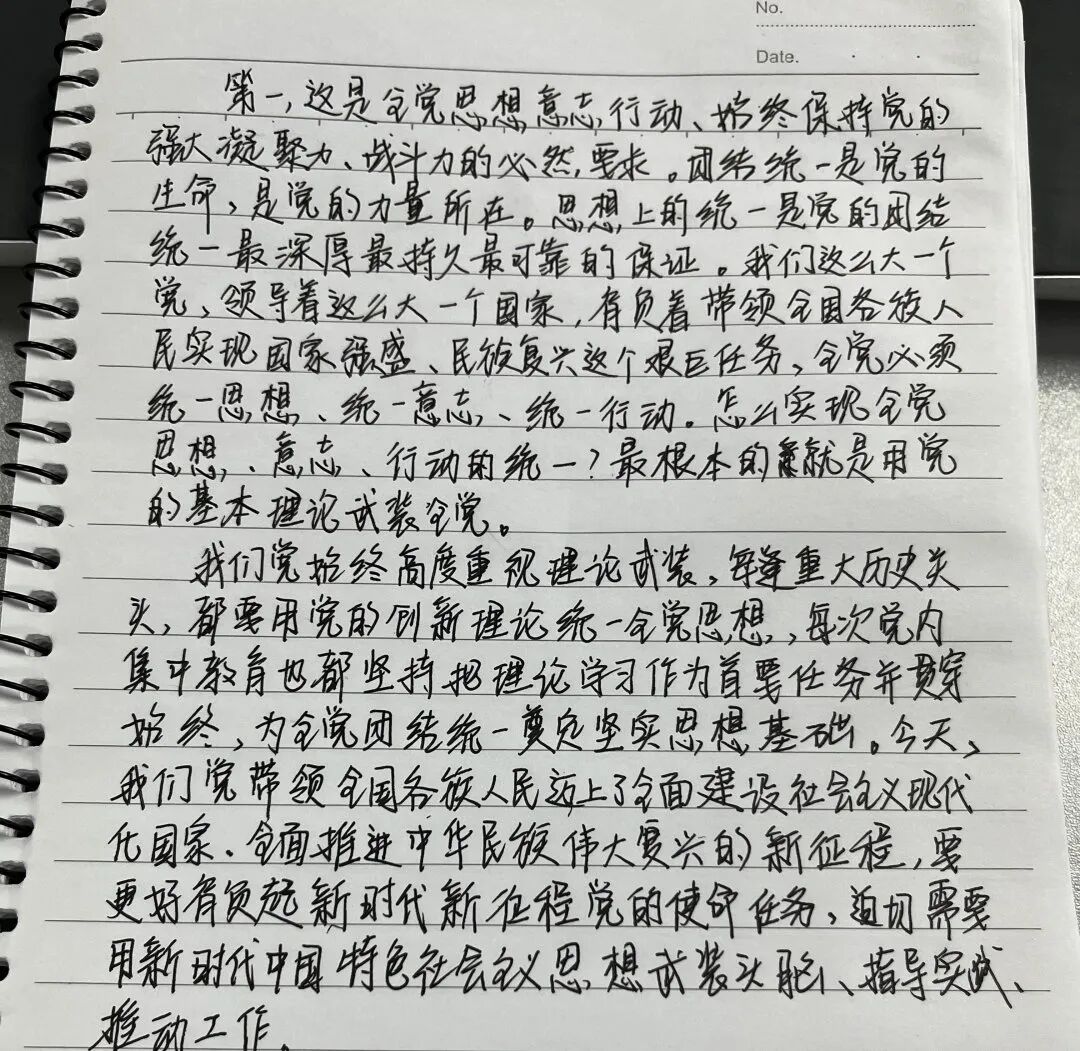 No.
Date.
第一,这是全党思想意志行动、始终保持党的
强大凝聚力、战斗力的必然要求。团结统一是党的
生命,是党的力量所在。思想上的统一是党的团结
统一最深厚最持久最可靠的保证。我们这么大一个
党,领导着这么大一个国家,肩负着带领全国各族人
民实现国家强盛、民族复兴这个艰巨任务,全党必须
统一思想、统一意志、统一行动。怎么实现全党
思想、意志、行动的统一?最根本的就是用党
的基本理论武装全党。
我们党始终高度重视理论武装,每逢重大历史关
头,都要用党的创新理论统一全党思想,每次党内
集中教育也都坚持把理论学习作为首要任务并贯穿
始终,为全党团结统一奠定坚实思想基础。今天,
我们党带领全国各族人民迈上了全面建设社会主义现代
化国家、全面推进中华民族伟大复兴的新征程,要
更好肩负起新时代新征程党的使命任务,迫切需要
用新时代中国特色社会主义思想武装头脑、指导实践、
推动工作。